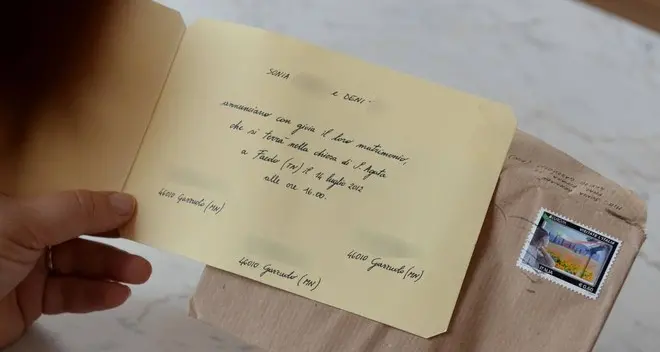 SONIA
e DENI
annunciano con gioia il loro matrimonio,
che si terrà nella chiesa di S. Agata
a Faedo (TN) il 14 luglio 2012
alle ore 16.00.
46010 Gazzuolo (MN)
46010 Gazzuolo (MN)
46010 Gazzuolo (MN)
VISITARE L'ITALIA
ITALIA
€ 0,60